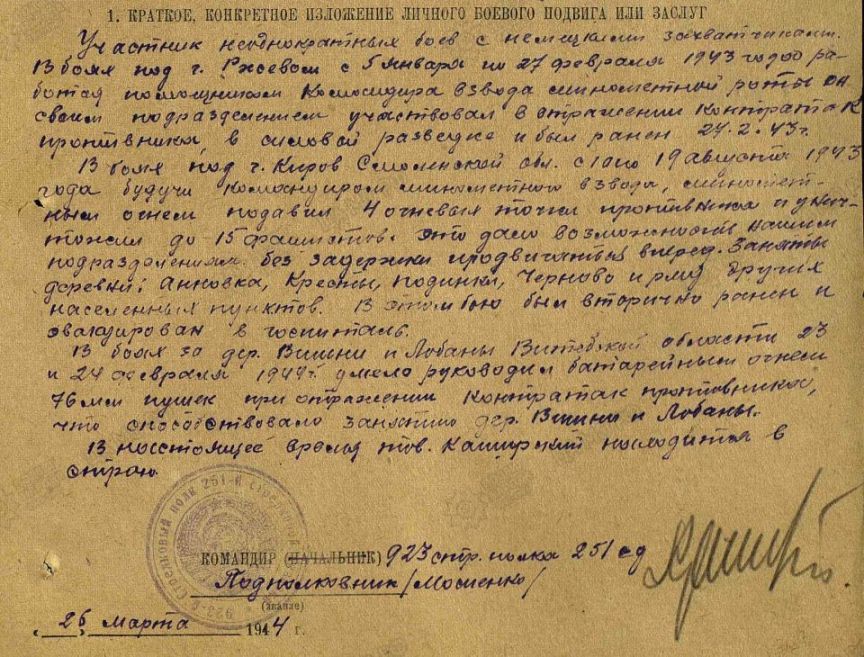 1. КРАТКОЕ, КОНКРЕТНОЕ ИЗЛОЖЕНИЕ ЛИЧНОГО БОЕВОГО ПОДВИГА ИЛИ ЗАСЛУГ
Участник неоднократных боев с немецкими захватчиками.
В боях под г. Ржевом с 5 января по 27 февраля 1943 года ра-
ботая помощником командира взвода минометной роты он
своим подразделением участвовал в отражении контратак
противника, в силовой разведке и был ранен 27.2.43г.
В боях под г. Киров Смоленской обл. с 10 по 19 августа 1943
года будучи командиром минометного взвода, миномет-
ным огнем подавил 4 огневых точки противника и унич-
тожил до 15 фашистов. Это дало возможность нашим
подразделениям без задержки продвигаться вперед. Заняты
деревни: Анновка, Кресты, Черново и ряд других
населенных пунктов. В этом бою был вторично ранен и
эвакуирован в госпиталь.
В боях за дер. Вишни и Лобаны Витебской области 23
и 24 февраля 1944г. умело руководил батарейным огнем
76мм пушек при отражении контратак противника,
что способствовало занятию дер. Вишни и Лобаны.
В настоящее время тов. Каширский находится в
строю.
КОМАНДИР (НАЧАЛЬНИК) 923 стр. полка 251 сд
Подполковник /Мосиенко/
(звание)
„26" марта 1944 г.